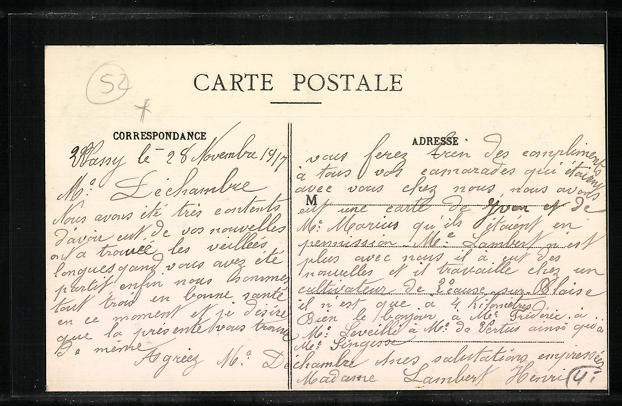 52
CARTE POSTALE
CORRESPONDANCE
ADRESSE
Wassy le 28 Novembre 1917
Mr. Déchambre
Nous avons été très contents
d'avoir eut de vos nouvelles
on a trouvée les veillées
longues quand vous avez été
partit enfin nous sommes
tout trou en bonne santé
en ce moment et je désire
que la présente vous trouve
de même.
Agréez Mr. Déchambre mes salutations empressées
Madame Lambert Henri
vous ferez bien des compliments
à tous vos camarades qui étaient
avec vous chez nous, nous avons
M
eut une carte de Yvon et de
Mr. Marius qu'ils étaient en
permission. Mr. Lambert n'est
plus avec nous il a eut des
nouvelles et il travaille chez un
cultivateur de sur Blaise
il n'est que à 4 Kilomètres
Bien le bonjour à Mr. Fréderic à
Mr. Leveillé à Mr. de Vertus ainsi qu'à
Mr. Singesse